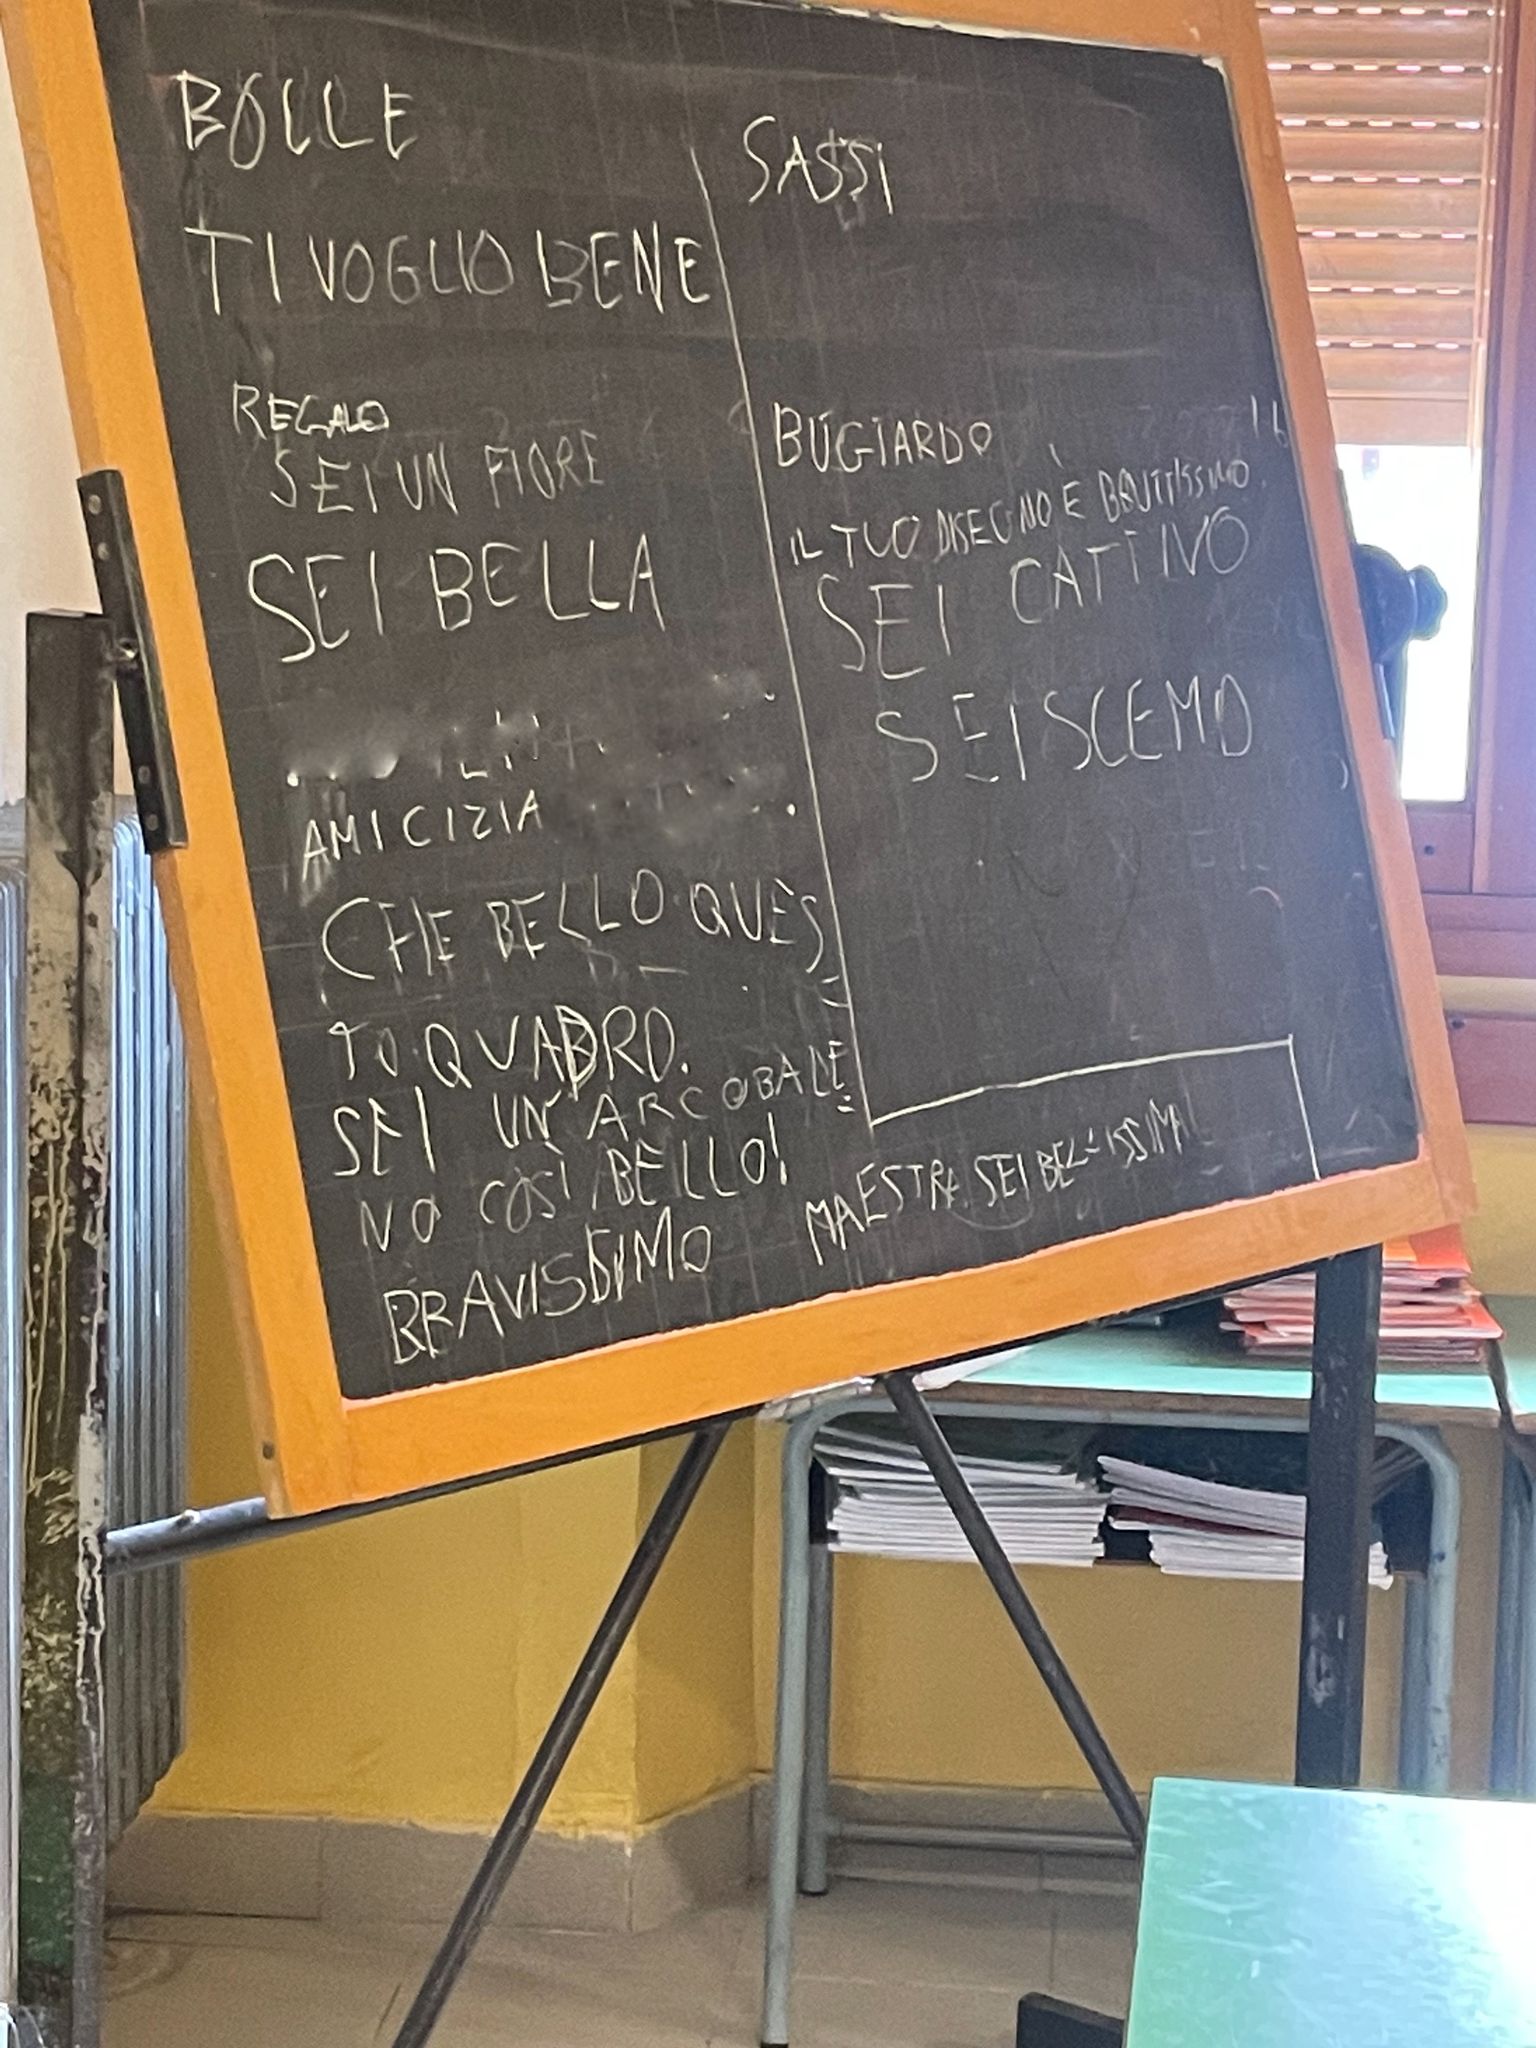 BOLLE
TI VOGLIO BENE
REGALO
SEI UN FIORE
SEI BELLA
AMICIZIA
CHE BELLO QUES
TO QUADRO.
SEI UN ARCOBALE
NO COSÌ BELLO!
BRAVISSIMO
SASSI
BUGIARDO
IL TUO DISEGNO È BRUTTISSIMO.
SEI CATTIVO
SEI SCEMO
MAESTRA SEI BELLISSIMA